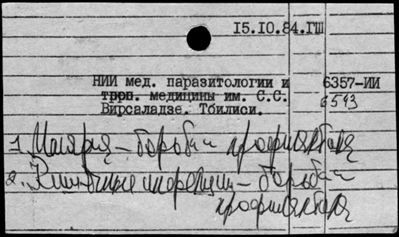 15.10.84.ГШ
НИИ мед. паразитологии и 6357-ИИ
троп. медицины им. С.С. 6593
Вирсаладзе. Тбилиси.
1. Малярия – борьба и профилактика
2. Кишечные инфекции – борьба и
профилактика